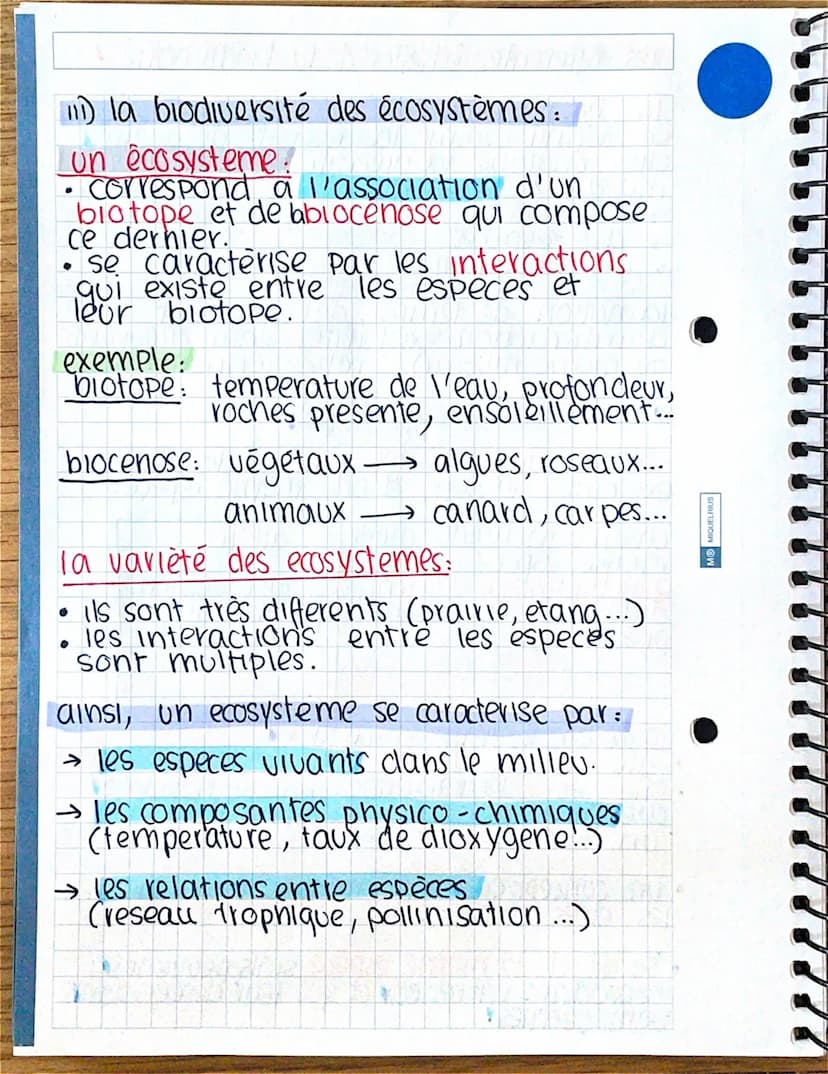 III) la biodiversité des écosystèmes:
un écosysteme:
• correspond à l'association d'un
biotope et de la biocenose qui compose
ce dernier.
• se caractèrise par les interactions
qui existe entre les espèces et
leur biotope.
exemple:
biotope: température de l'eau, profondeur,
roches presente, ensoleillement...
biocenose: végétaux → algues, roseaux...
animaux → canard, carpes...
la varièté des ecosystemes:
• ils sont très differents (prairie, etang...)
• les interactions entre les especes
sont multiples.
ainsi, un ecosysteme se caracterise par:
→ les especes vivants dans le milieu.
→ les composantes physico-chimiques
(temperature, taux de dioxygene...)
→ les relations entre espèces
(reseau trophique, pollinisation...)
MIQUELRIUS